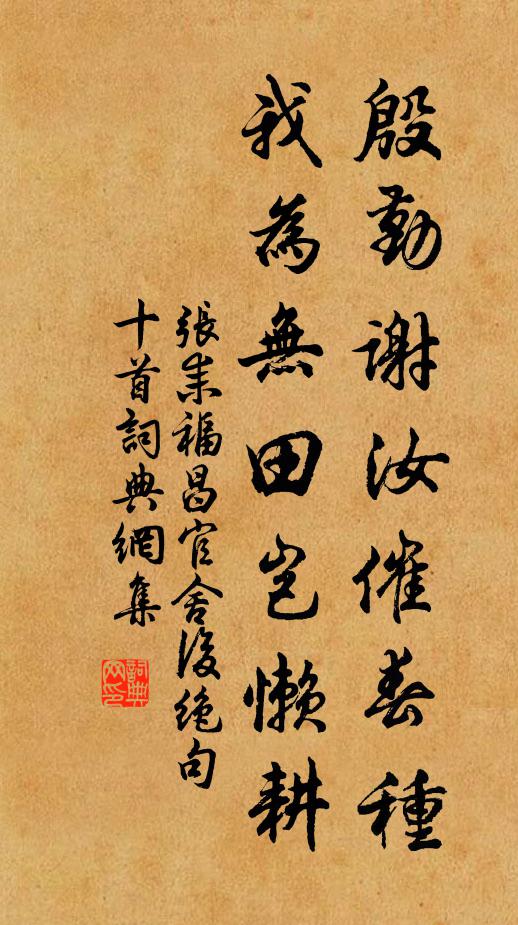 殷勤謝汝催春種
我為無田岂懶耕
張耒福昌官舍後絕句
十首詞典網集
詞典
网印